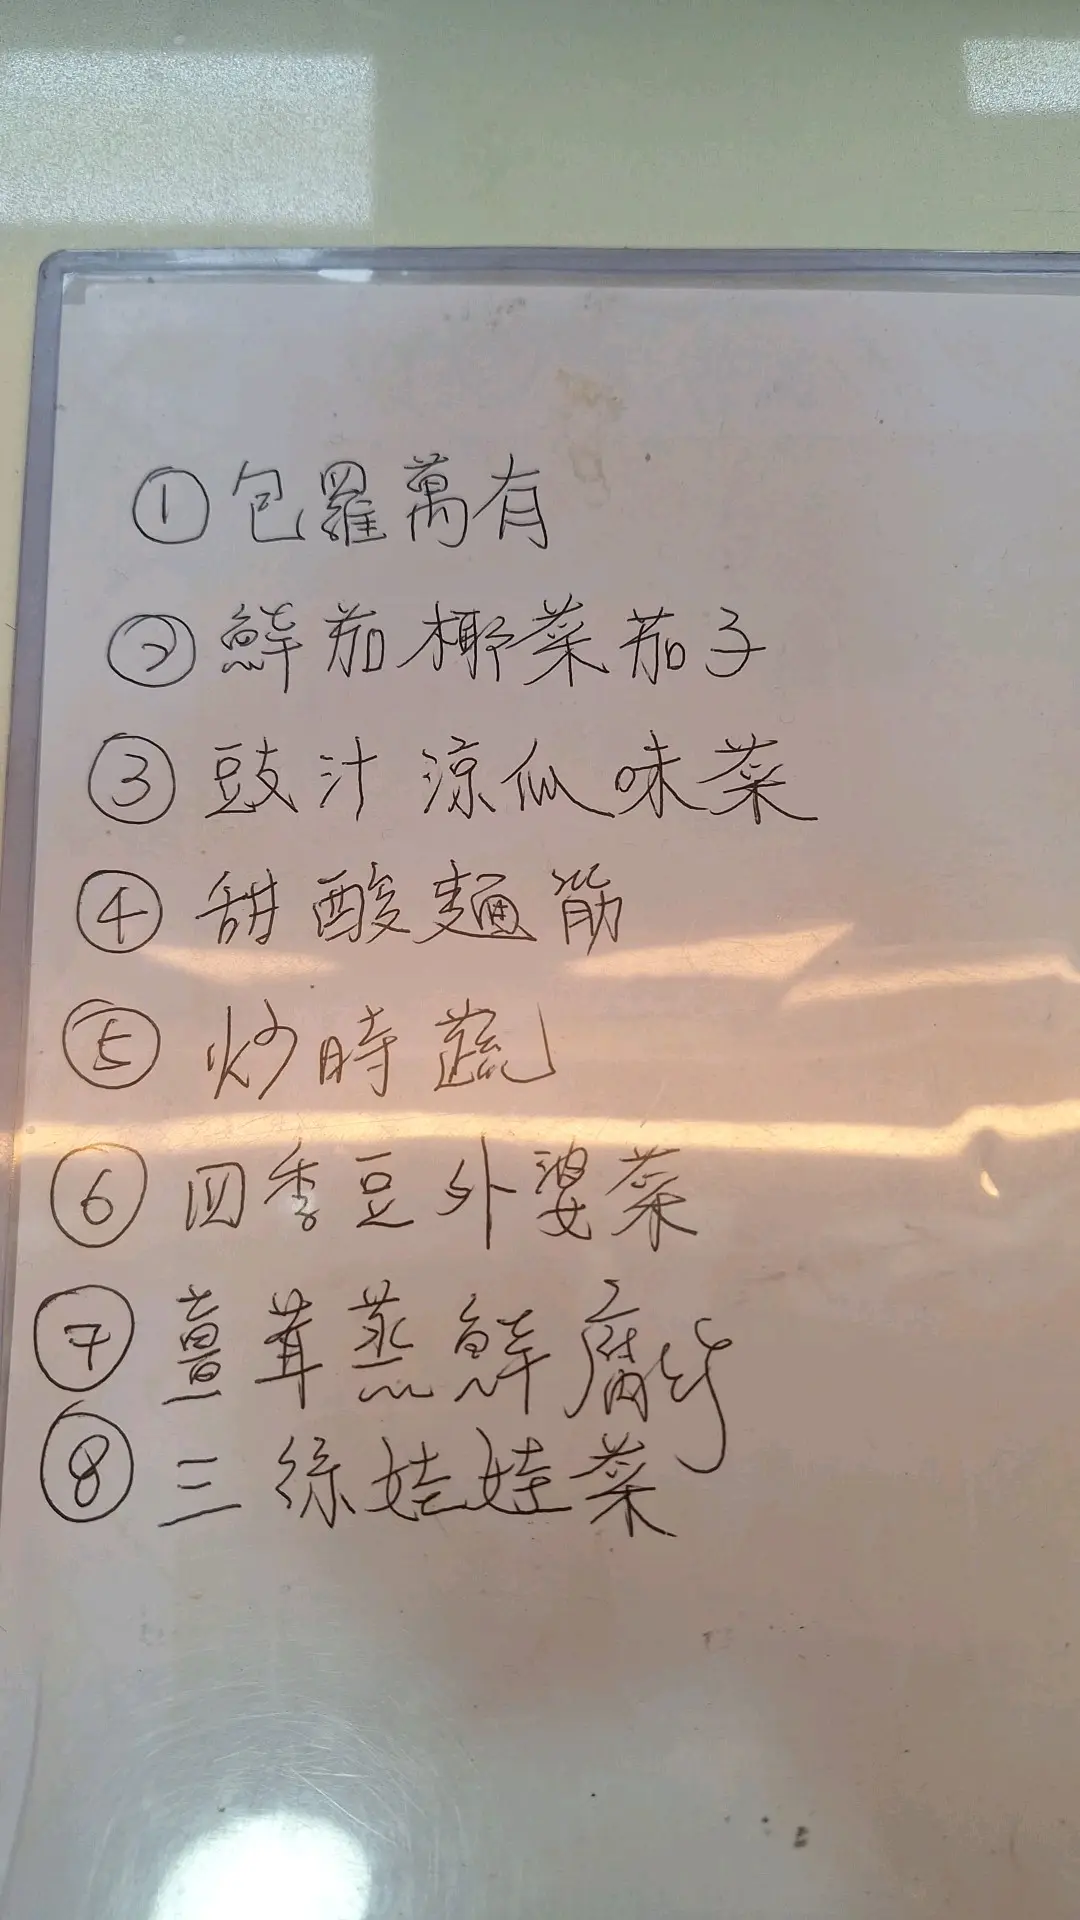 ① 包羅萬有
② 鮮茄椰菜茄子
③ 豉汁涼瓜味菜
④ 甜酸麵筋
⑤ 炒時蔬
⑥ 四季豆外婆菜
⑦ 薑茸蒸鮮腐竹
⑧ 三絲娃娃菜